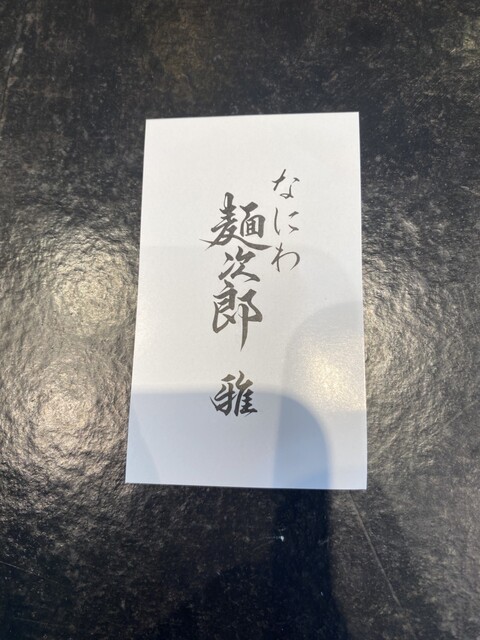 なにわ
麺次郎 雅